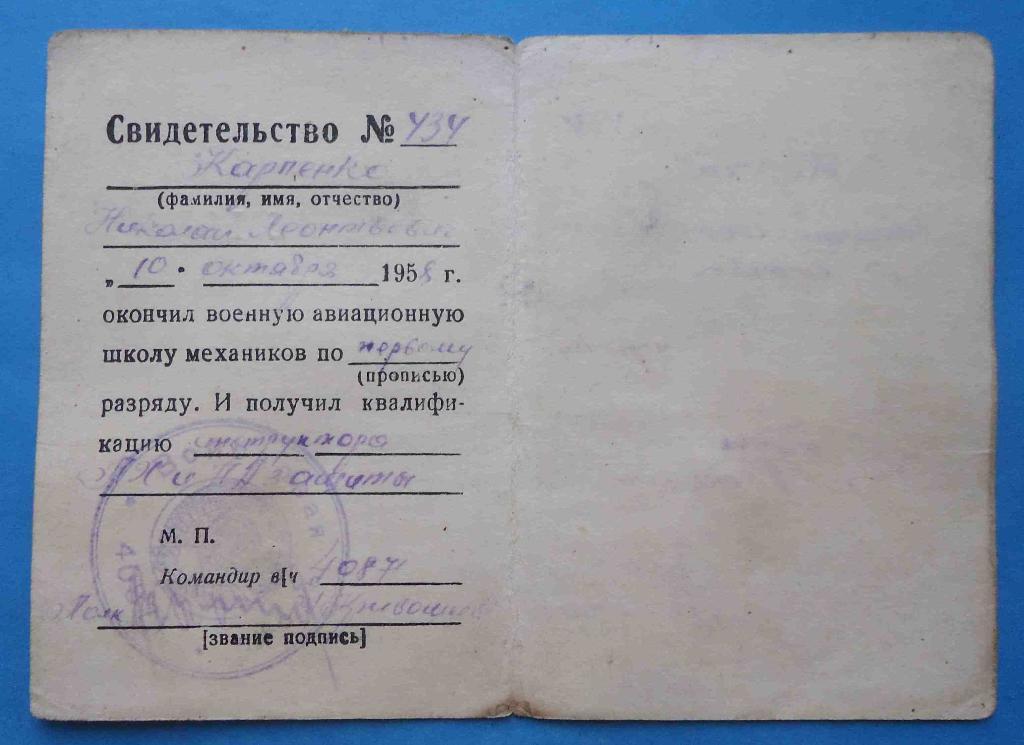 Свидетельство № 434
Карпенко
(фамилия, имя, отчество)
Николай Леонтьевич
„ 10 " октября 1958 г.
окончил военную авиационную
школу механиков по первому
(прописью)
разряду. И получил квалифи-
кацию инструктора
ПХ и ПА защиты
М. П.
Командир в[ч 40871
[звание подпись]